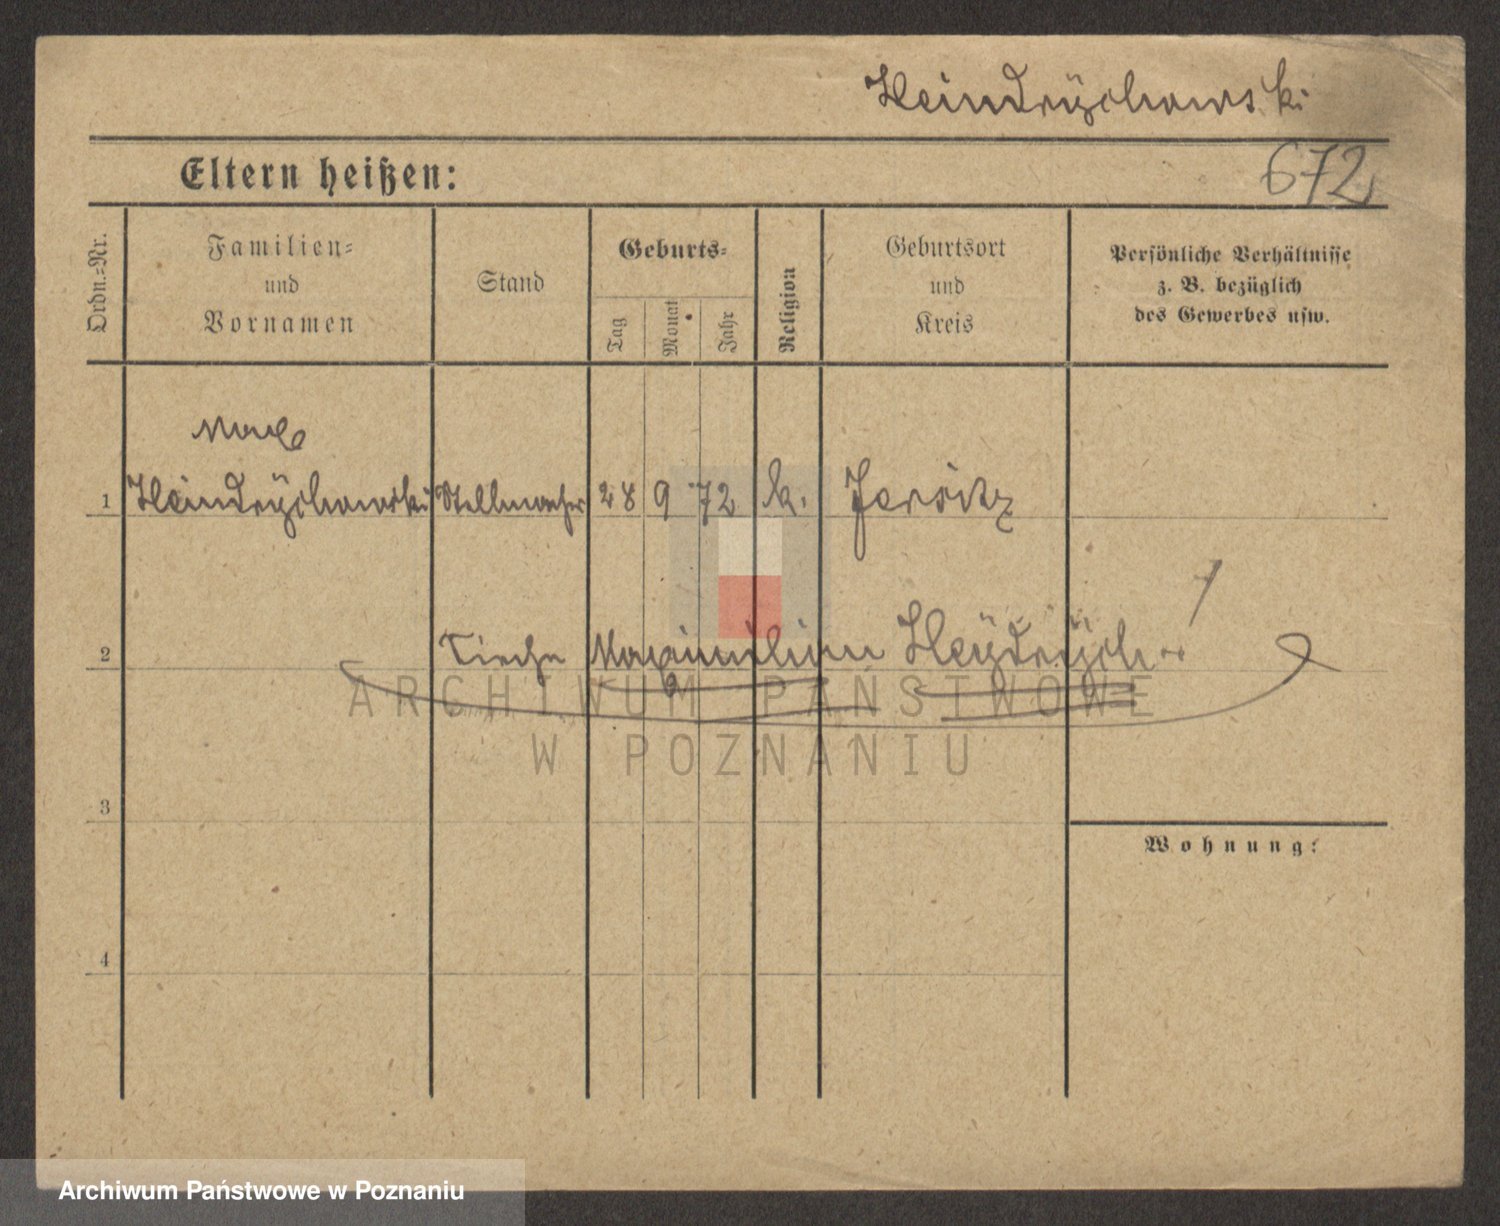 Heindrÿchowski
Eltern heißen:
672
Ordn.=Nr.
Familien=
und
Vornamen
Stand
Geburts=
Tag
Monat
Jahr
Religion
Geburtsort
und
Kreis
Persönliche Verhältnisse
z. B. bezüglich
des Gewerbes usw.
Max
1 Heindrÿchowski Stellmacher 28 9 72 k. Jersitz
2 Siehe Maximilian Heÿdrÿch
ARCHIWUM PAŃSTWOWE
W POZNANIU
3
Wohnung:
4
Archiwum Państwowe w Poznaniu